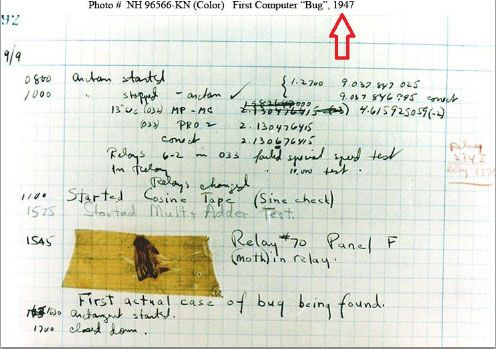 Photo # NH 96566-KN (Color) First Computer “Bug”, 1947
92
9/9
0800 antan started
1000 " stopped - antan ✓ { 1.2700 9.037 847 025
9.037 846 995 correct
13"uc (032) MP - MC 2.130476415 4.615925059(-2)
(033) PRO 2 2.130476415
correct 2.130676415
Relays 6-2 in 033 failed special speed test
in relay " 10,000 test .
Relays changed
1100 Started Cosine Tape (Sine check)
1525 Started Mult+Adder Test.
1545 Relay #70 Panel F
(Moth) in relay.
First actual case of bug being found.
1630 antangent started.
1700 closed down .
Relay
2145
Relay